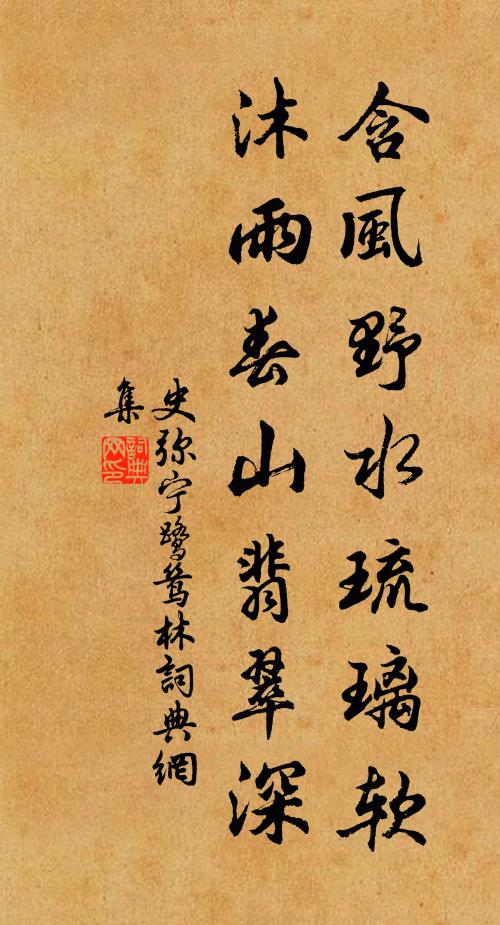 含風野水琉璃软
沐雨春山翡翠深
史弥宁鹭鸶林詞典網
集
詞典網印